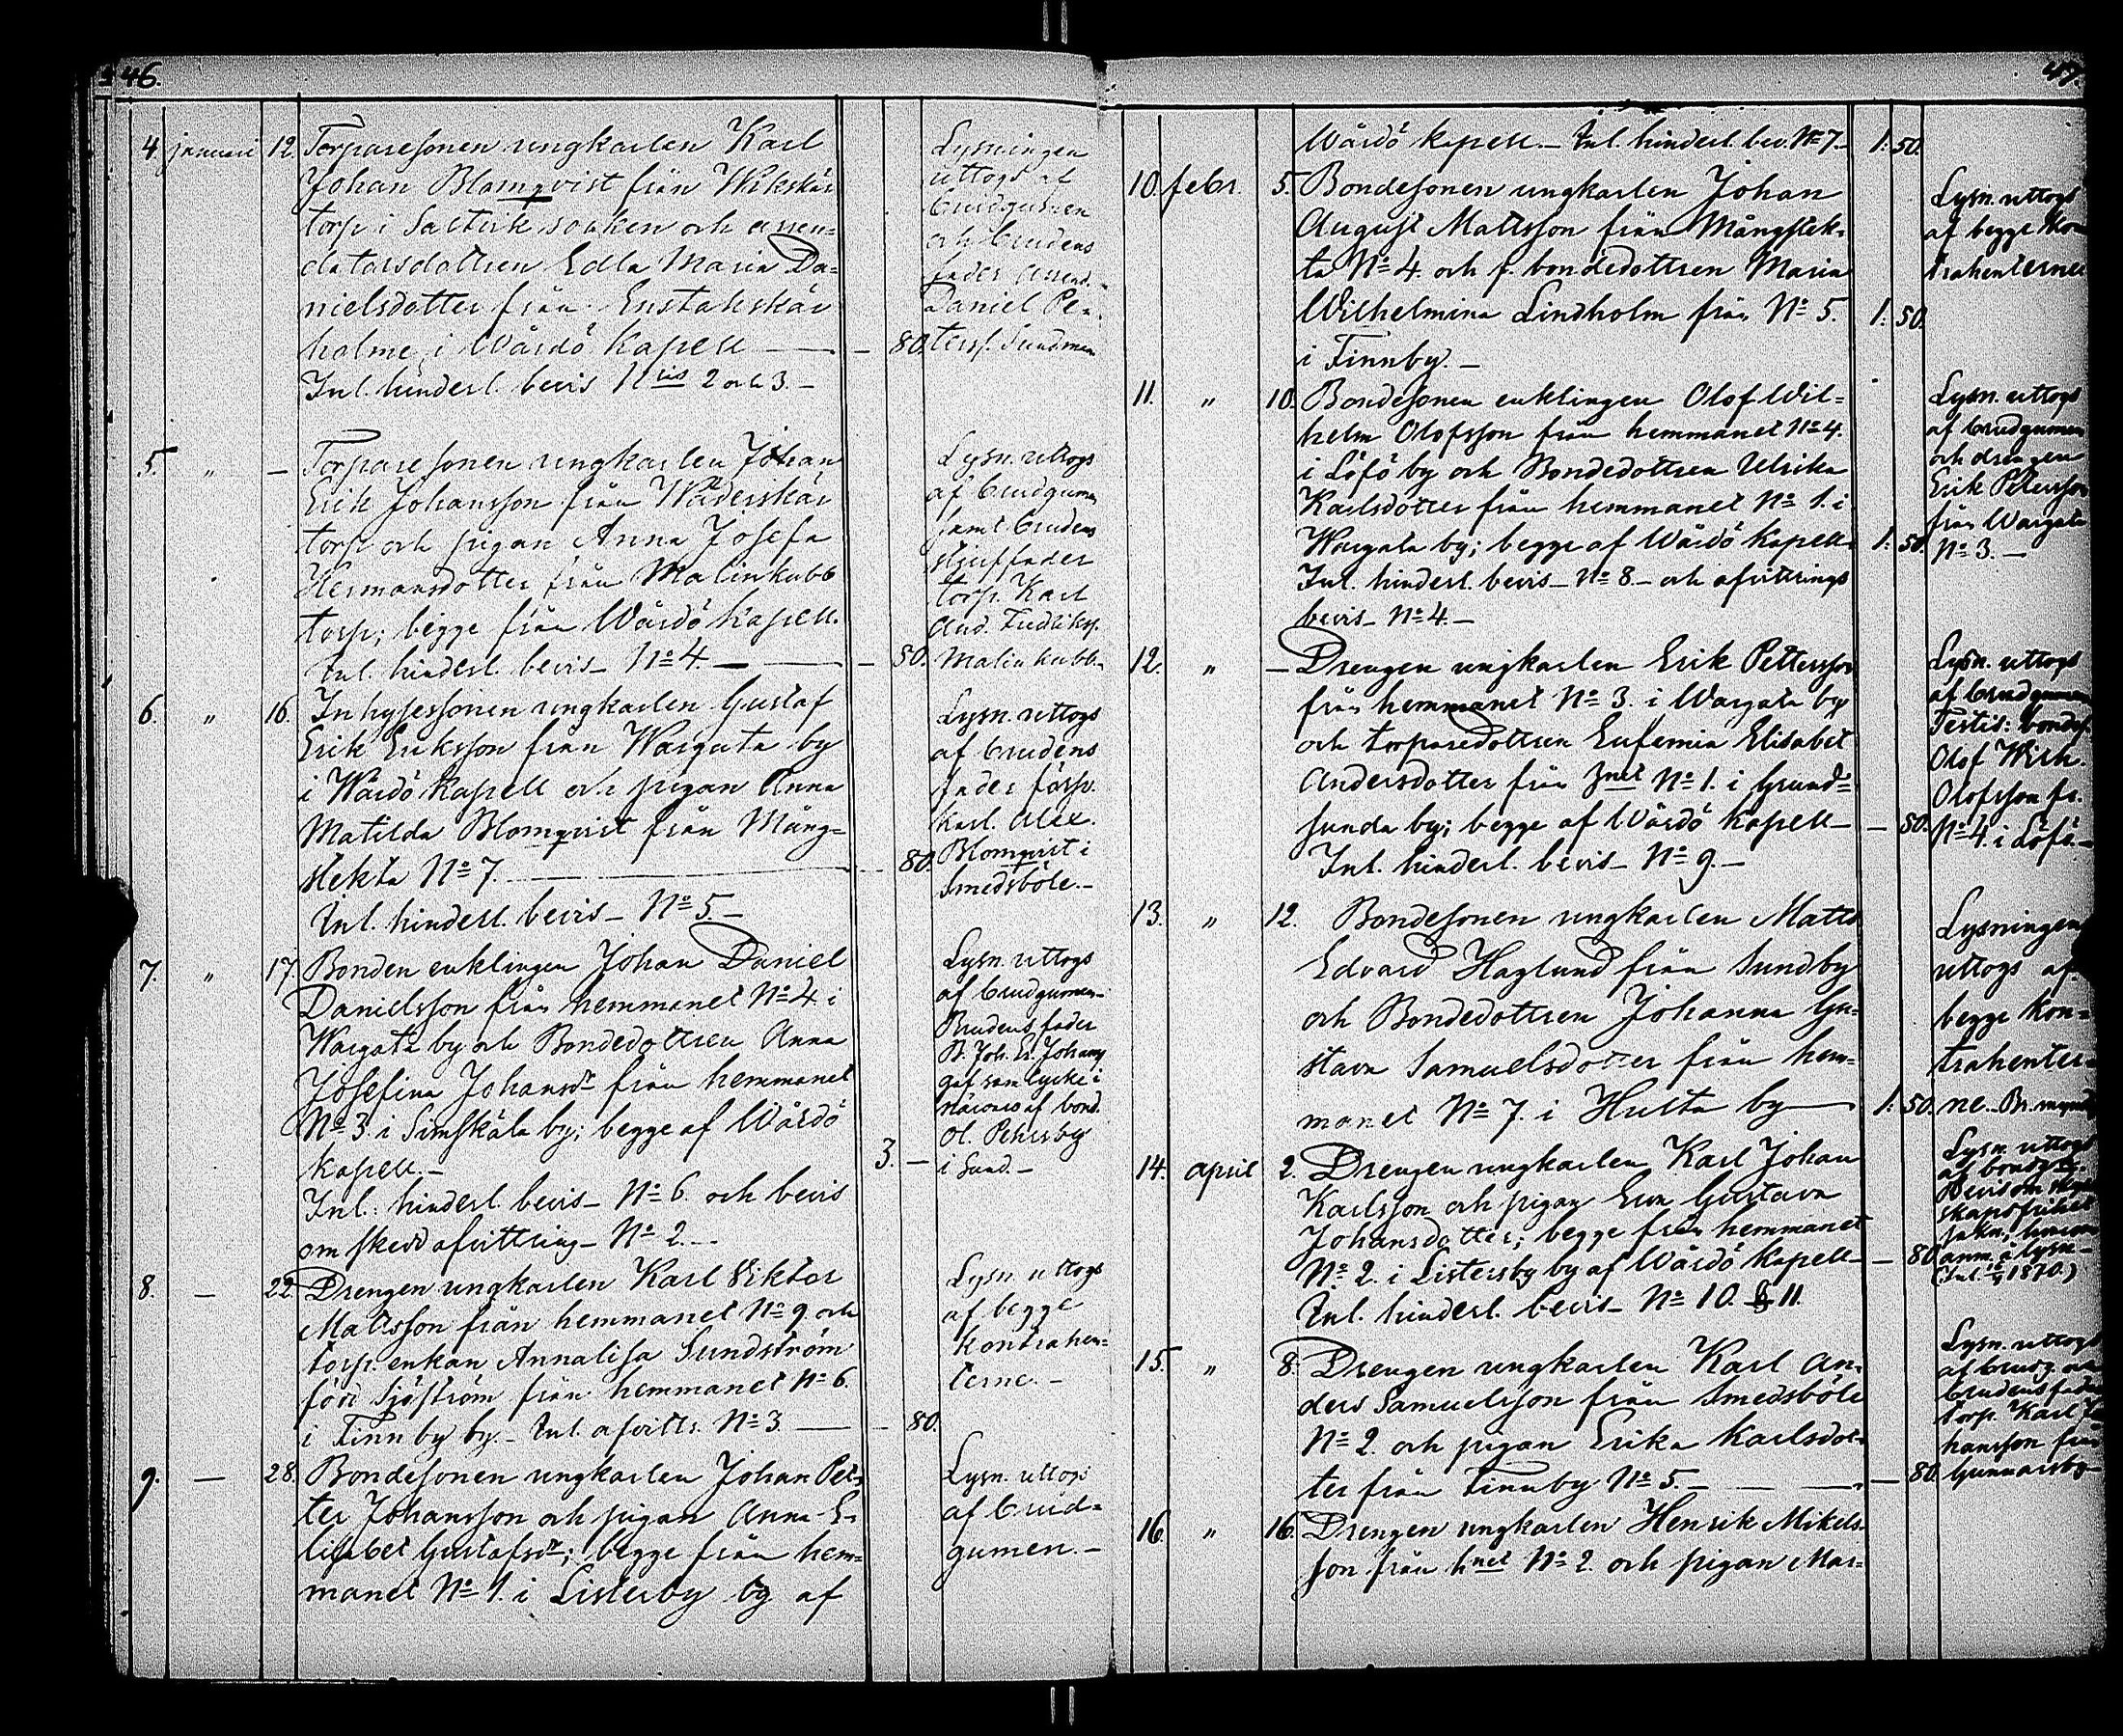 46.
4. januari 12. Torparesonen ungkarlen Karl
Johan Blomqvist från Wikskär
torp i Saltvik socken och arren=
datorsdottren Edla Maria Da=
nielsdotter från Enstakskär
holme, i Wårdö Kapell — — 80.
Inl. hinderl. bevis N:is 2 och 3. —
Lysningen
uttogs af
brudgumen
och brudens
fader Arrend.
Daniel Pet-
terss. Sundman
5. " — Torparesonen ungkarlen Johan
Erik Johansson från Wäderskär
torp och pigan Anna Josefa
Hermansdotter från Malinkubb
torp; begge från Wårdö Kapell.
Inl. hinderl. bevis — No 4. — — 80.
Lysn. uttogs
af brudgumen
samt brudens
stjuffader
torp. Karl
And. Fredriks.
Malinkubb.
6. " 16. Inhysessonen ungkarlen Gustaf
Erik Eriksson från Wargata by
i Wårdö Kapell och pigan Anna
Matilda Blomqvist från Mång=
stekta No 7. — — 80.
Inl. hinderl. bevis — No 5. —
Lysn. uttogs
af brudens
fader förp.
Karl. Alex.
Blomqvist i
Smedsböle. —
7. " 17. Bonden enklingen Johan Daniel
Danielsson från hemmanet No 4 i
Wargata by och Bondedottren Anna
Josefina Johansdr från hemmanet
No 3 i Simskäla by; begge af Wårdö
kapell. — 3. —
Inl. hinderl. bevis — No 6. och bevis
om skedd afvittring — No 2. —
Lysn. uttogs
af brudgumen —
Brudens fader
B. Joh. Er. Johanss.
gaf samtycke i
närvaro af bond.
Ol. Pehrsby
i Sund. —
8. — 22. Drengen ungkarlen Karl Viktor
Mattsson från hemmanet No 9. och
torp. enkan Annalisa Sundström
född Sjöström från hemmanet No 6.
i Finnby by. — Inl. afvittr. No 3 — — 80.
Lysn. uttogs
af begge
kontrahen=
terne. —
9. — 28. Bondesonen ungkarlen Johan Pet=
ter Johansson och pigan Anna E-
lisabet Gustafsdr; begge från hem=
manet No 1. i Listerby by af
Lysn. uttogs
af brud=
gumen. —
47.
Wårdö kapell. — Inl. hinderl. bev. No 7. — 1: 50.
10. febr. 5. Bondesonen ungkarlen Johan
August Mattsson från Mångstek=
ta No 4. och f. bondedottren Maria
Wilhelmina Lindholm från No 5. 1: 50.
i Finnby. —
Lysn. uttogs
af begge kon
trahenterne
11. " 10. Bondesonen enklingen Olof Wil=
helm Olofsson från hemmanet No 4.
i Löfö by och Bondedottren Ulrika
Karlsdotter från hemmanet No 1. i
Wargata by; begge af Wårdö kapell. 1: 50.
Inl. hinderl. bevis — No 8. — och afvittrings
bevis — No 4. —
Lysn. uttogs
af brudgumen
och drengen
Erik Petersson
från Wargata
No 3. —
12. " — Drengen ungkarlen Erik Pettersson
från hemmanet No 3. i Wargata by
och torparedottren Eufemia Elisabet
Andersdotter från hnet No 1. i Grund=
sunda by; begge af Wårdö kapell — — 80.
Inl. hinderl. bevis — No 9. —
Lysn. uttogs
af brudgumen
Testis: bondes.
Olof Wilh.
Olofsson fr.
No 4. i Löfö. —
13. " 12. Bondesonen ungkarlen Matts
Edvard Haglund från Sundby
och Bondedottren Johanna Gu=
stava Samuelsdotter från hem=
manet No 7. i Hulta by — 1: 50.
Lysningen
uttogs af
begge kon=
trahenter=
ne. — Br. mynd.
14. april 2. Drengen ungkarlen Karl Johan
Karlsson och pigan Eva Gustava
Johansdotter; begge från hemmanet
No 2. i Listersby by af Wårdö kapell — — 80.
Inl. hinderl. bevis — No 10. & 11.
Lysn. uttogs
af brudg.
Bevis om
skapsfrihet
anm. å lysn —
1870.)
15. " 8. Drengen ungkarlen Karl An=
ders Samuelsson från Smedsböle
No 2. och pigan Erika Karlsdot=
ter från Finnby No 5. — — 80.
Lysn. uttogs
af brudg.
brudens fader
torp. Karl Jo
hansson från
Gunnarsby —
16. " 16. Drengen ungkarlen Henrik Mikels=
son från hnet No 2. och pigan Mar=